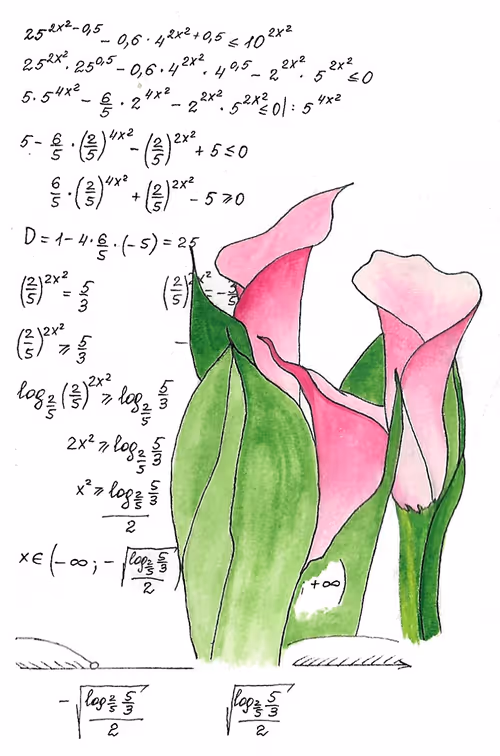 25^(2x²-0,5) - 0,6 · 4^(2x²+0,5) ≤ 10^(2x²)
25^(2x²) · 25^(0,5) - 0,6 · 4^(2x²) · 4^(0,5) - 2^(2x²) · 5^(2x²) ≤ 0
5 · 5^(4x²) - 6/5 · 2^(4x²) - 2^(2x²) · 5^(2x²) ≤ 0 | : 5^(4x²)
5 - 6/5 · (2/5)^(4x²) - (2/5)^(2x²) + 5 ≤ 0
6/5 · (2/5)^(4x²) + (2/5)^(2x²) - 5 ≥ 0
D = 1 - 4 · 6/5 · (-5) = 25
(2/5)^(2x²) = 5/3 (2/5)^(2x²) = -
(2/5)^(2x²) ≥ 5/3 -
log_(2/5) (2/5)^(2x²) ≥ log_(2/5) 5/3
2x² ≥ log_(2/5) 5/3
x² ≥ (log_(2/5) 5/3)/2
x ∈ (-∞ ; - √((log_(2/5) 5/3)/2) ; +∞
- √((log_(2/5) 5/3)/2) √((log_(2/5) 5/3)/2)